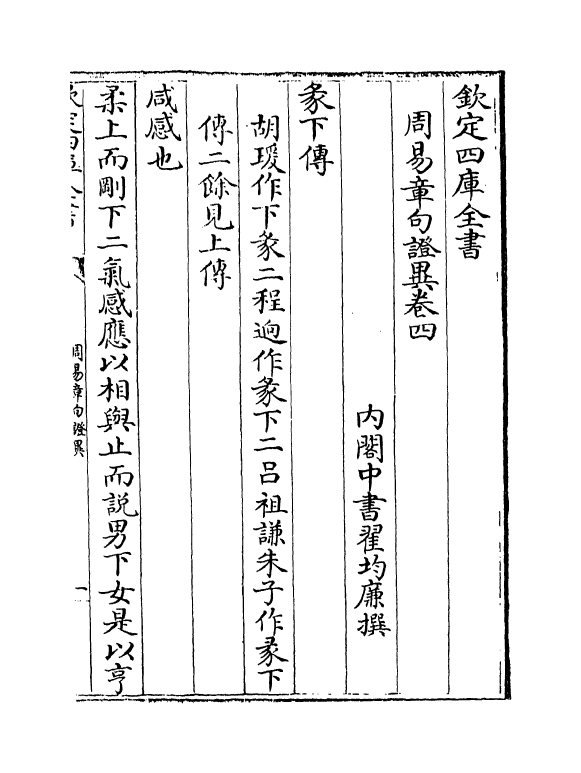 欽定四庫全書
周易章句證異卷四
内閣中書翟均廉撰
彖下傳
胡瑗作下彖二程逈作彖下二吕祖謙朱子作彖下
傳二餘見上傳
咸感也
柔上而剛下二氣感應以相與止而説男下女是以亨
欽定四庫全書
周易章句證異
一